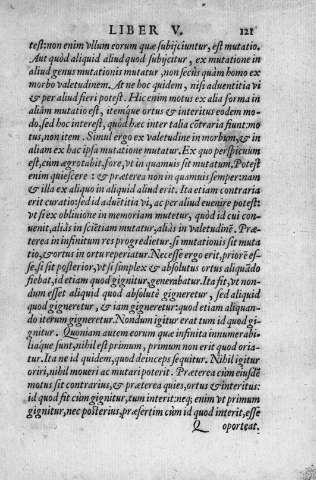 LIBER V. 121
test: non enim vllum eorum quæ subijciuntur, est mutatio.
Aut quòd aliquid aliud quod subijcitur, ex mutatione in
aliud genus mutationis mutatur, non secùs quàm homo ex
morbo in valetudinem. At ne hoc quidem, nisi aduentitia vi
& per aliud fieri potest. Hic enim motus ex alia forma in
aliàm mutatio est, itemque ortus & interitus eodem mo-
do, sed hoc interest, quòd hæc inter talia cōtraria fiunt: mo-
tus, non item. Simul ergo ex valetudine in morbum, & in
aliam ex hac ipsa mutatione mutatur. Ex quo perspicuum
est, cùm ægrotabit, fore, vt in quamuis sit mutatum. Potest
enim quiescere: & præterea non in quamuis semper: nam
& illa ex aliquo in aliquid aliud erit. Ita etiam contraria
erit curatio: sed id aduētitia vi, ac per aliud euenire potest:
vt si ex obliuione in memoriam mutetur, quòd id cui con-
uenit, aliàs in sciētiam mutatur, aliàs in valetudinē. Præ-
terea in infinitum res progredietur, si mutationis sit muta
tio, & ortus in ortu reperiatur. Necesse ergo erit, priorē es-
se, si sit posterior, vt si simplex & absolutus ortus aliquādo
fiebat, id etiam quod gignitur, generabatur. Ita fit, vt non-
dum esset aliquid quod absolutè gigneretur, sed aliquid
quod gigneretur, & iam gigneretur: quod etiam aliquan-
do iterum gigneretur. Nondum igitur erat tum id quod gi-
gnitur. Quoniam autem eorum quæ infinita innumerabi-
liaque sunt, nihil est primum, primum non erit quod oria-
tur. Ita ne id quidem, quod deinceps sequitur. Nihil igitur
oriri, nihil moueri ac mutari poterit. Præterea cùm eiusdē
motus sit contrarius, & præterea quies, ortus & interitus:
id quod fit cùm gignitur, tum interit: neq; enim vt primum
gignitur, nec posterius, præsertim cùm id quod interit, esse
Q oporteat.